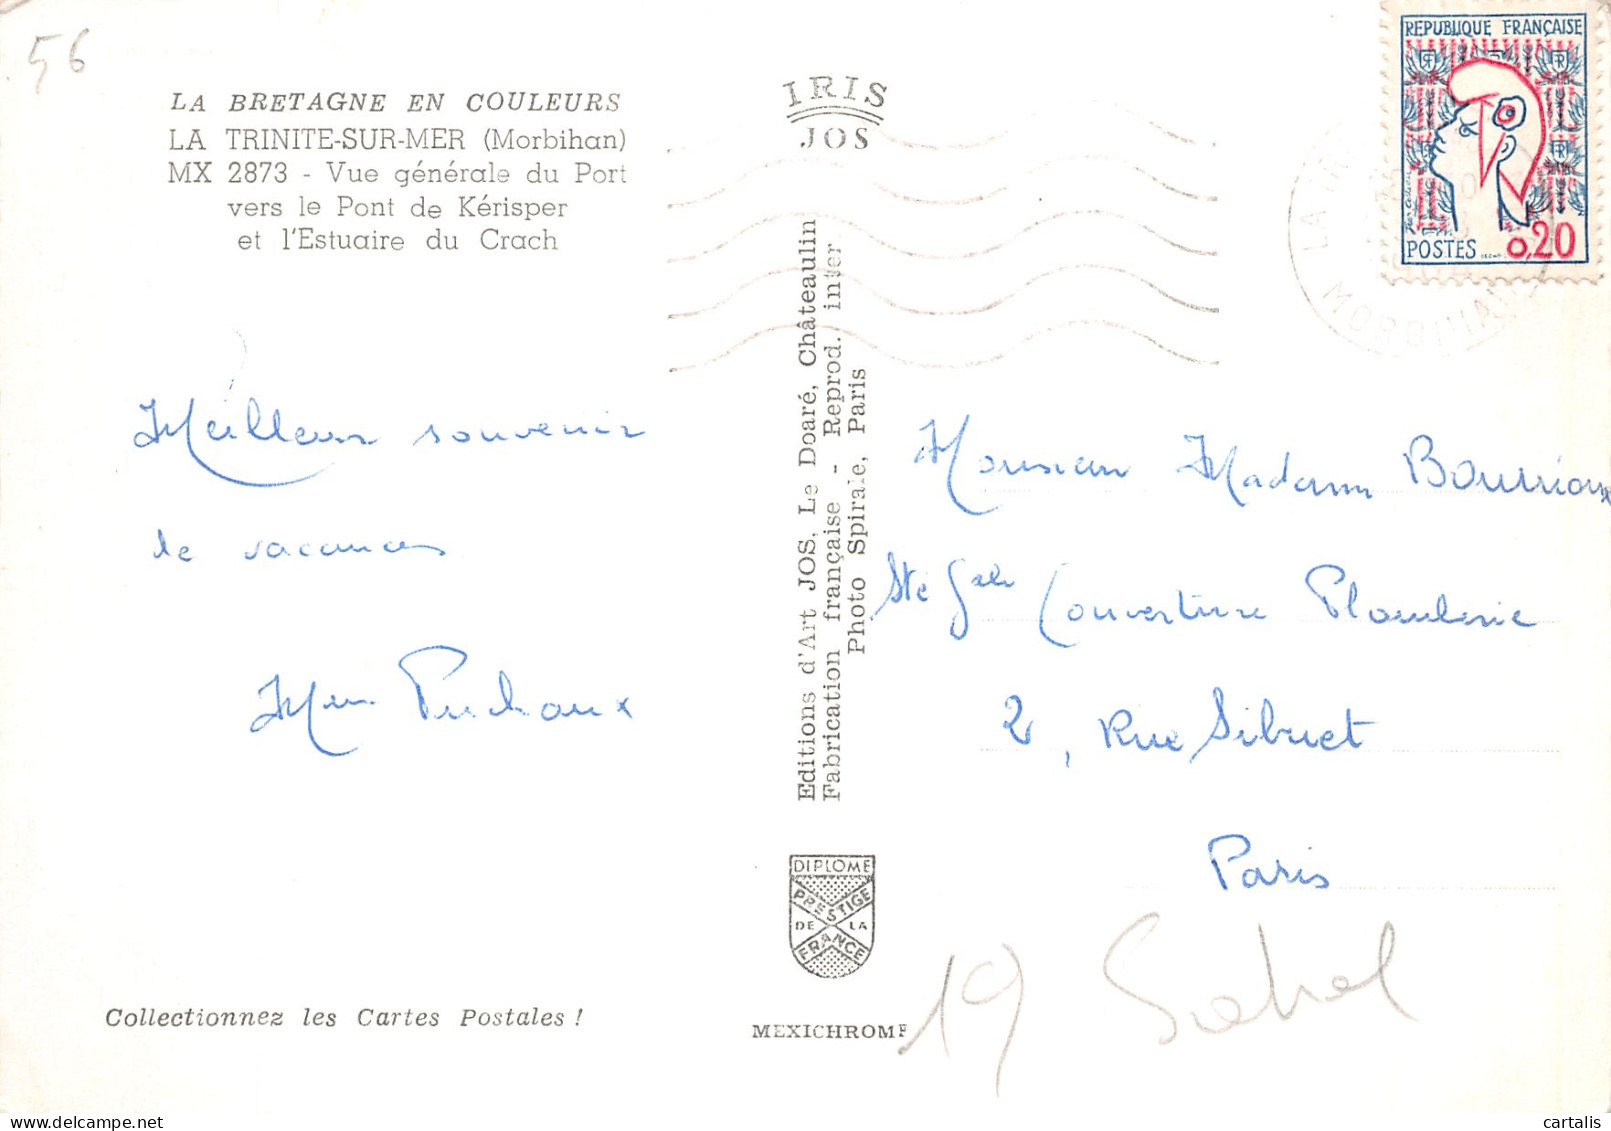 56
LA BRETAGNE EN COULEURS
LA TRINITE-SUR-MER (Morbihan)
MX 2873 - Vue générale du Port
vers le Pont de Kérisper
et l'Estuaire du Crach
Meilleur souvenir
de vacances
Mme
Collectionnez les Cartes Postales !
IRIS
JOS
Editions d'Art JOS, Le Doaré, Châteaulin
Fabrication française - Reprod. inter
Photo Spirale, Paris
DIPLOME
PRESTIGE
DE LA
FRANCE
MEXICHROME
REPUBLIQUE FRANÇAISE
POSTES 0,20
MORBIHAN
Monsieur Madame Bourrioux
Sté Gale Couverture Plomberie
2, Rue Sibuet
Paris
19
cartalis
www.delcampe.net